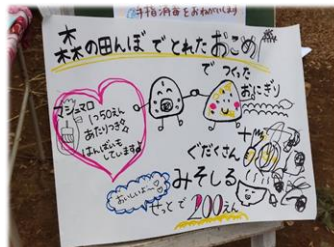 手指消毒をおねがいします
森の田んぼでとれたおこめ
でつくった
おにぎり
マシュマロ
1つ50えん
あたりつき
はんばいも
しています
ぐだくさん
みそしる
おいしいよ〜
せっとで200えん